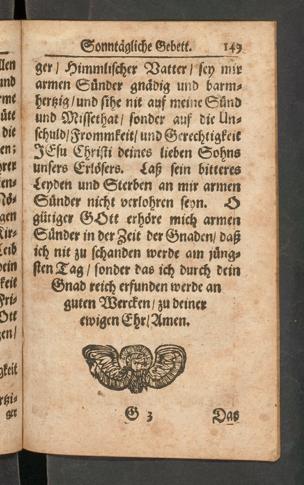 Sonntägliche Gebett. 149
ger / Himmlischer Vatter / sey mir
armen Sünder gnädig und barm-
hertzig / und sihe nit auf meine Sünd
und Missethat / sonder auf die Un-
schuld / Frommkeit / und Gerechtigkeit
JEsu Christi deines lieben Sohns
unsers Erlösers. Laß sein bitteres
Leyden und Sterben an mir armen
Sünder nicht verlohren seyn. O
gütiger GOtt erhöre mich armen
Sünder in der Zeit der Gnaden / daß
ich nit zu schanden werde am jüng-
sten Tag / sonder das ich durch dein
Gnad reich erfunden werde an
guten Wercken / zu deiner
ewigen Ehr / Amen.
G 3 Das